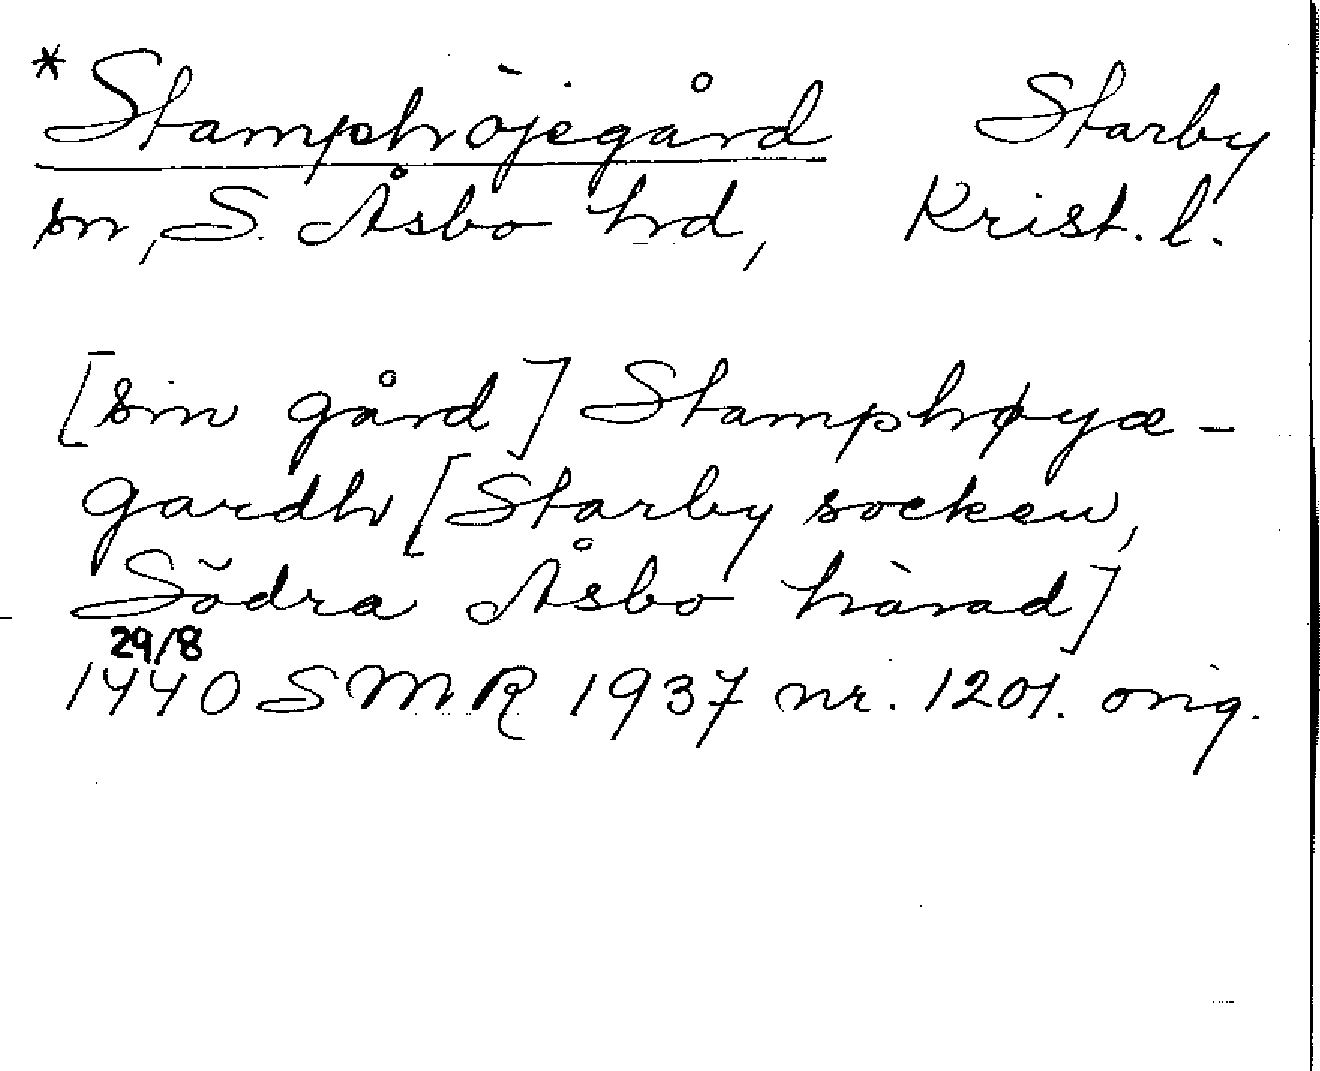 *Stamphöjegård Starby
sn, S. Åsbo hd, Krist. l.
[sin gård] Stamphøyæ-
gardh [Starby socken,
Södra Åsbo härad]
29/8
1440 SMR 1937 nr. 1201. orig.